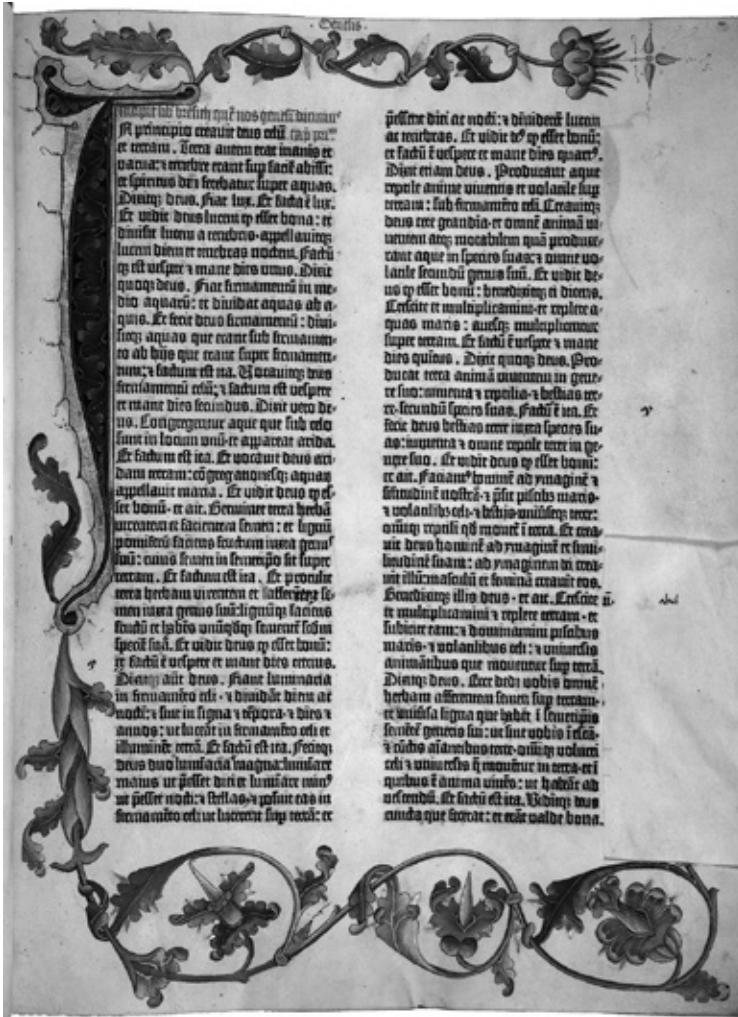 Genesis.
Incipit lib̄ bresich quē nos genesim dicimus
In principio creauit deus celū
et terram. Terra autem erat inanis et
vacua: ⁊ tenebre erant sup̄ faciē abissi:
et spiritus dn̄i ferebatur super aquas.
Dixitq; deus. Fiat lux. Et facta ē lux.
Et vidit deus lucem ꝙ esset bona: et
diuisit lucem a tenebris · appellauitq;
lucem diem et tenebras noctem. Factū
q; est vespere ⁊ mane dies vnus. Dixit
quoq; deus. Fiat firmamentū in me-
dio aquarū: et diuidat aquas ab a-
quis. Et fecit deus firmamentū: diui-
sitq; aquas que erant sub firmamen-
to ab hijs que erant super firmamen-
tum: ⁊ factum est ita. Vocauitq; deus
firmamentū celū: ⁊ factum est vespere
et mane dies secundus. Dixit vero de-
us. Congregentur aque que sub celo
sunt in locum vnū et appareat arida.
Et factum est ita. Et vocauit deus ari-
dam terram: cōgregationesq; aquarū
appellauit maria. Et vidit deus ꝙ es-
set bonū · et ait. Germinet terra herbā
virentem et facientem semen: et lignū
pomiferū faciens fructum iuxta genus
suū: cuius semen in semetipso sit super
terram. Et factum est ita. Et protulit
terra herbam virentem et facientem se-
men iuxta genus suū: lignūq; faciens
fructū et habēs vnūqdq; sementē scd̄m
speciē suā. Et vidit deus ꝙ esset bonū:
et factū ē vespere et mane dies tercius.
Dixitq; aūt deus. Fiant luminaria
in firmamēto celi · ⁊ diuidāt diem ac
noctē: ⁊ sint in signa ⁊ tēpora · ⁊ dies ⁊
annos: ut luceāt in firmamēto celi et
illuminēt terrā. Et factū est ita. Fecitq;
deus duo luminaria magna: luminare
maius ut p̄esset diei et luminare minꝰ
ut p̄esset nocti: ⁊ stellas · ⁊ posuit eas in
firmamēto celi ut lucerent sup̄ terrā: et
p̄essent diei ac nocti: ⁊ diuiderēt lucem
ac tenebras. Et vidit deꝰ ꝙ esset bonū:
et factū ē vespere et mane dies quartꝰ.
Dixit etiam deus. Producant aque
reptile anime viuentis et volatile sup̄
terram: sub firmamēto celi. Creauitq;
deus cete grandia · et omnē animā vi-
uentem atq; motabilem quā produxe-
rant aque in species suas: ⁊ omne vo-
latile secundū genus suū. Et vidit de-
us ꝙ esset bonū: benedixitq; ei dicens.
Crescite et multiplicamini · et replete a-
quas maris: auesq; multiplicentur
super terram. Et factū ē vespere ⁊ mane
dies quintus. Dixit quoq; deus. Pro-
ducat terra animā viuentem in gene-
re suo: iumenta ⁊ reptilia · ⁊ bestias ter-
re · secundū species suas. Factū ē ita. Et
fecit deus bestias terre iuxta species su-
as: iumenta ⁊ omne reptile terre in ge-
nere suo. Et vidit deus ꝙ esset bonū:
et ait. Faciamꝰ hominē ad ymaginē ⁊
similitudinē nostrā · ⁊ p̄sit piscibꝫ maris ·
⁊ volatilibꝫ celi · ⁊ bestijs vniuseq; terre:
omniq; reptili qd mouet̄ ī terra. Et crea-
uit deus hominē ad ymaginē et simi-
litudinē suam: ad ymaginem dei crea-
uit illū: masculū et feminā creauit eos.
Benedixitq; illis deus · et ait. Crescite
et multiplicamini ⁊ replete terram · et
subicite eam: ⁊ dominamini piscibus
maris · ⁊ volatilibus celi: ⁊ vniuersis
animātibus que mouentur sup̄ terrā.
Dixitq; deus. Ecce dedi vobis omnē
herbam afferentem semen sup̄ terram ·
et vniūsa ligna que habēt ī semetipsis
sementē generis sui: ut sint vobis ī escā ·
⁊ cūctis aīantibus terre · omiq; volucri
celi ⁊ vniuersis q̄ mouētur in terra · et ī
quibus ē anima viuēs: ut habeāt ad
vescendū. Et factū est ita. Viditq; deus
cuncta que fecerat: et erāt valde bona.